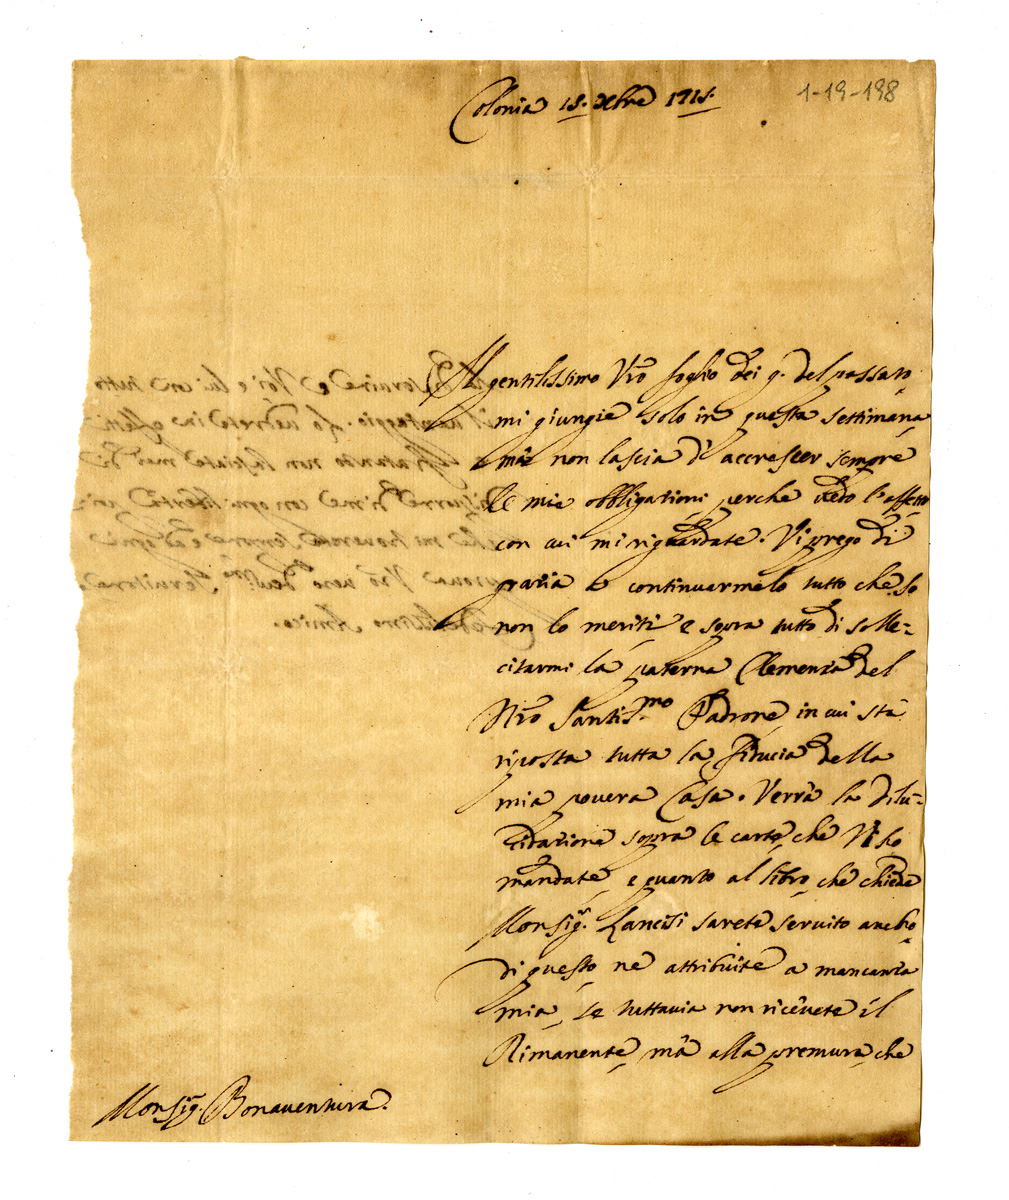 1-19-198
Colonia 15. Xbre 1715.
Il gentilissimo Vrō foglio dei 9. del passato
mi giungie solo in questa settimana,
mà non lascia d'accrescer sempre
le mie obbligationi perche vedo l'affetto
con cui mi riguardate. Vi prego di
gratia a continuarmelo tutto che so
non lo meriti, e sopra tutto di solle=
citarmi la paterna Clemenza del
Nrō Santiss.mo Padrone in cui stà
riposta tutta la fiducia della
mia povera Casa. Verrà la dilu=
cidatione sopra le carte, che Vi ho
mandate, e quanto al libro, che chiede
Monsig.r Lancisi sarete servito anche
di questo, ne attribuite a mancanza
mia, se tuttavia non ricevete il
Rimanente, mà alla premura, che
Monsig.r Bonaventura.